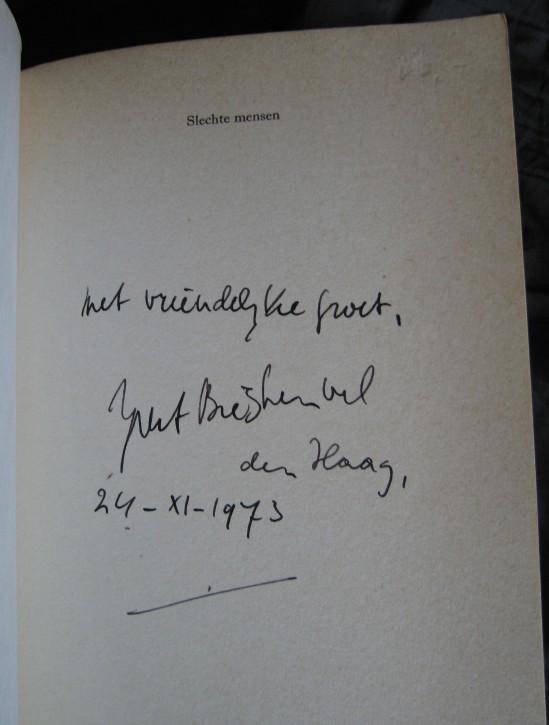 Slechte mensen
met vriendelijke groet,
den Haag,
24-XI-1973